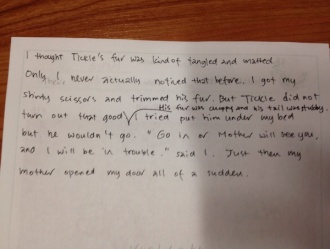 I thought Tickle's fur was kind of tangled and matted.
Only I never actually noticed that before. I got my
shiny scissors and trimmed his fur. But Tickle did not
His fur was choppy and his tail was stubby.
turn out that good √ I tried put him under my bed
but he wouldn't go. "Go in or Mother will see you,
and I will be in trouble." said I. Just then my
mother opened my door all of a sudden.